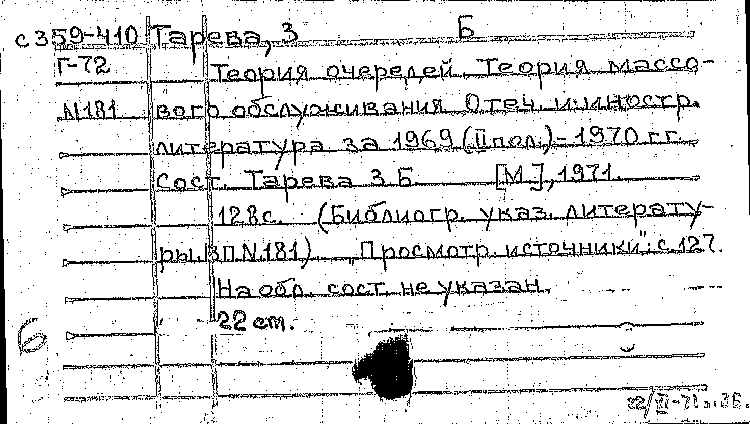 с359-410 Тарева, З Б
Г-72 Теория очередей. Теория массо-
N181 вого обслуживания Отеч. и иностр.
литература за 1969 (II пол.)-1970 гг.
Сост. Тарева З.Б [М.], 1971.
128с. (Библиогр. указ. литерату-
ры ВП N181) „Просмотр. источники": с.127.
На обл. сост. не указан.
22 cm.
б